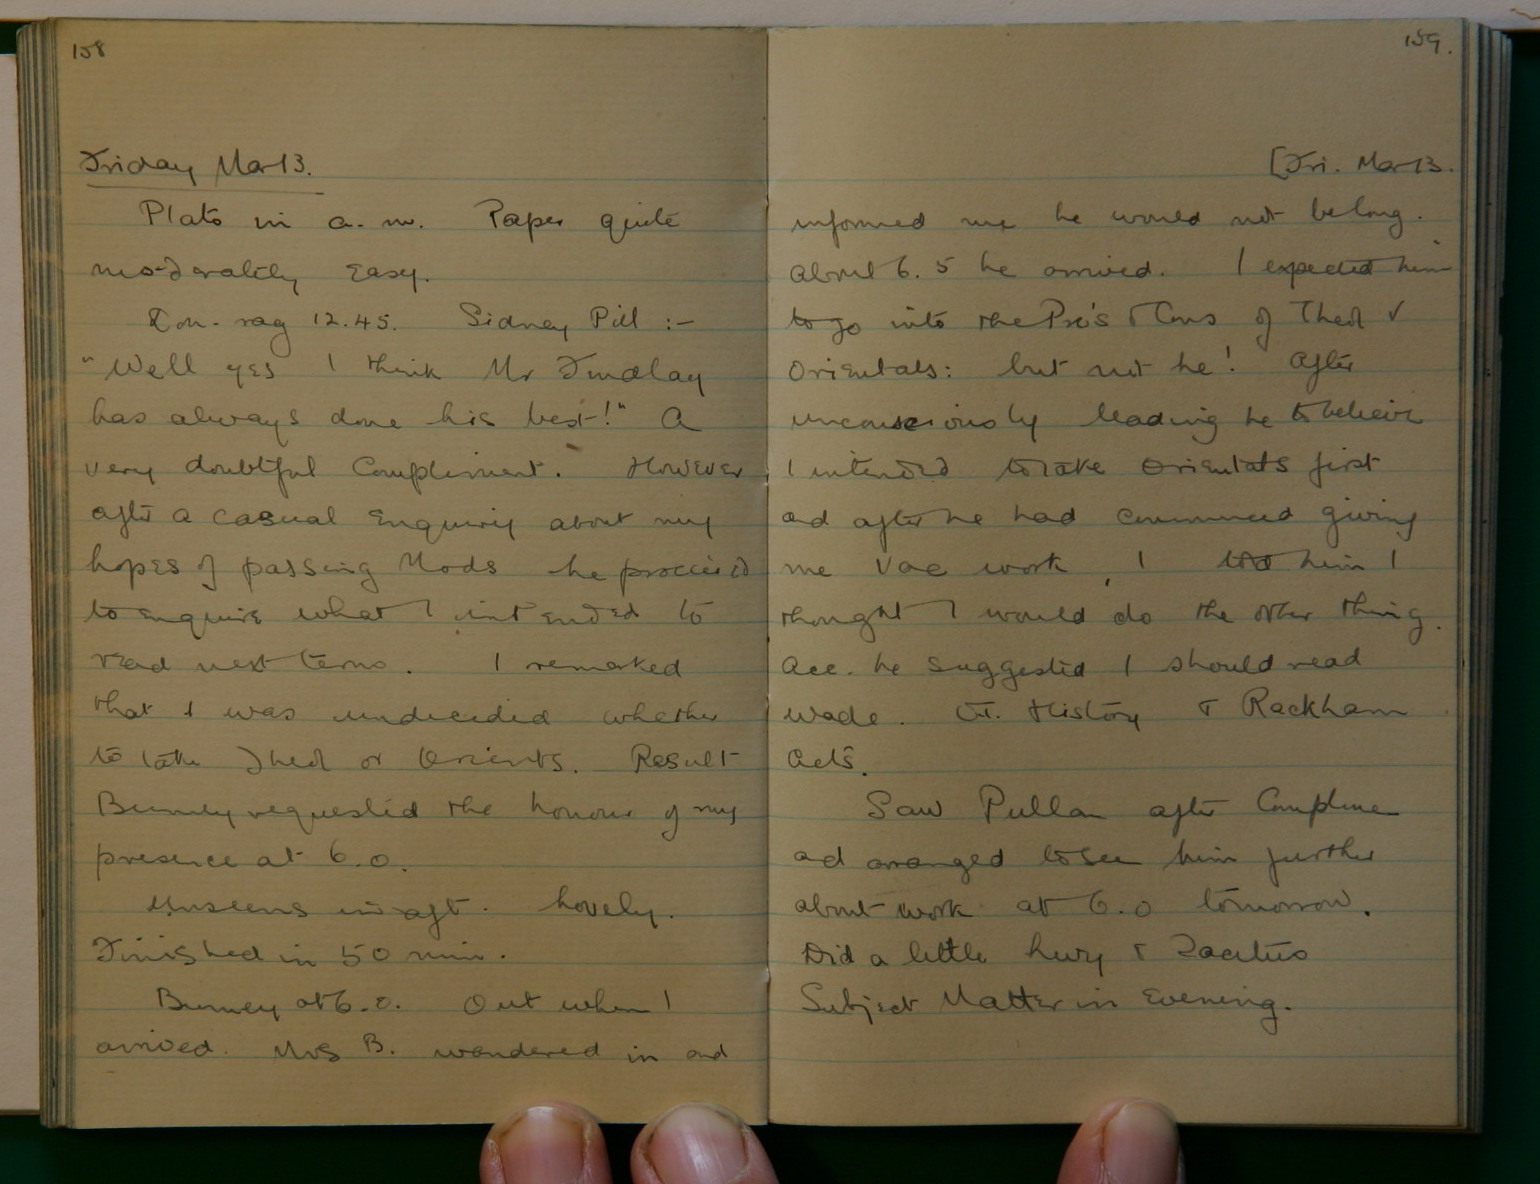 158
Friday Mar 13.
Plato in a.m. Paper quite
moderately easy.
Don-rag 12.45. Sidney Pill :-
"Well yes I think Mr Findlay
has always done his best!" A
very doubtful compliment. However
after a casual enquiry about my
hopes of passing Mods he proceeded
to enquire what I intended to
read next term. I remarked
that I was undecided whether
to take Theol or Orients. Result
Burney requested the honour of my
presence at 6.0.
Unseens in aft. Lovely.
Finished in 50 min.
Burney at 6.0. Out when I
arrived. Mrs B. wandered in and
159.
[Fri. Mar 13.
informed me he would not be long.
About 6.5 he arrived. I expected him
to go into the Pro's & Cons of Theol v
Orientals: but not he! After
unconsciously leading he to believe
I intended to take Orientals first
and after he had commenced giving
me Vac work, I told him I
thought I would do the other thing.
Acc. he suggested I should read
Wade. O.T. History & Rackham
Acts.
Saw Pullan after Compline
and arranged to see him further
about work at 6.0 tomorrow.
Did a little Livy & Tacitus
Subject Matter in Evening.